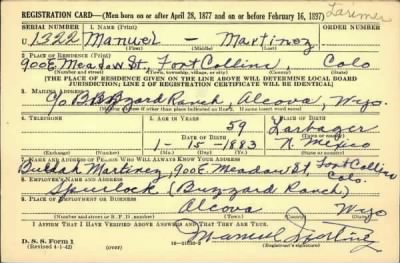 REGISTRATION CARD—(Men born on or after April 28, 1877 and on or before February 16, 1897) Larimer
SERIAL NUMBER 1. NAME (Print) ORDER NUMBER
U 1322 Manuel - Martinez
(First) (Middle) (Last)
2. PLACE OF RESIDENCE (Print)
900 E Meadow St, Fort Collins, Colo
(Number and street) (Town, township, village, or city) (County) (State)
[THE PLACE OF RESIDENCE GIVEN ON THE LINE ABOVE WILL DETERMINE LOCAL BOARD
JURISDICTION; LINE 2 OF REGISTRATION CERTIFICATE WILL BE IDENTICAL]
3. MAILING ADDRESS
c/o Buzzard Ranch, Alcova, Wyo.
[Mailing address if other than place indicated on line 2. If same insert word same]
4. TELEPHONE 5. AGE IN YEARS 6. PLACE OF BIRTH
59
DATE OF BIRTH
1-15-1883 N. Mexico
(Exchange) (Number) (Mo.) (Day) (Yr.) (State or country)
7. NAME AND ADDRESS OF PERSON WHO WILL ALWAYS KNOW YOUR ADDRESS
Beulah Martinez, 900 E. Meadow St, Fort Collins Colo.
8. EMPLOYER'S NAME AND ADDRESS
Spurlock (Buzzard Ranch)
9. PLACE OF EMPLOYMENT OR BUSINESS
Alcova Wyo
(Number and street or R. F. D. number) (Town) (County) (State)
I AFFIRM THAT I HAVE VERIFIED ABOVE ANSWERS AND THAT THEY ARE TRUE.
Manuel Martinez
D. S. S. Form 1
(Revised 4-1-42) (over) (Registrant's signature)